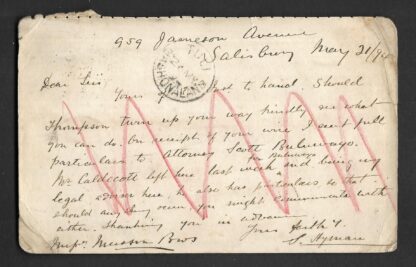 959 Jameson Avenue
Salisbury May 21/98
Dear Sir,
Yours just to hand Should
Thompson turn up your way kindly see what
you can do. On receipt of your wire I sent full
particulars to Attorney Scott Bulawayo.
for Bulawayo
Mr Caldecott left here last week and being my
legal adviser here he also has particulars so that
should any occur you might communicate with
either. Thanking you in advance
Yours faithfy.
S. Hyman
Messrs. Musson Bros